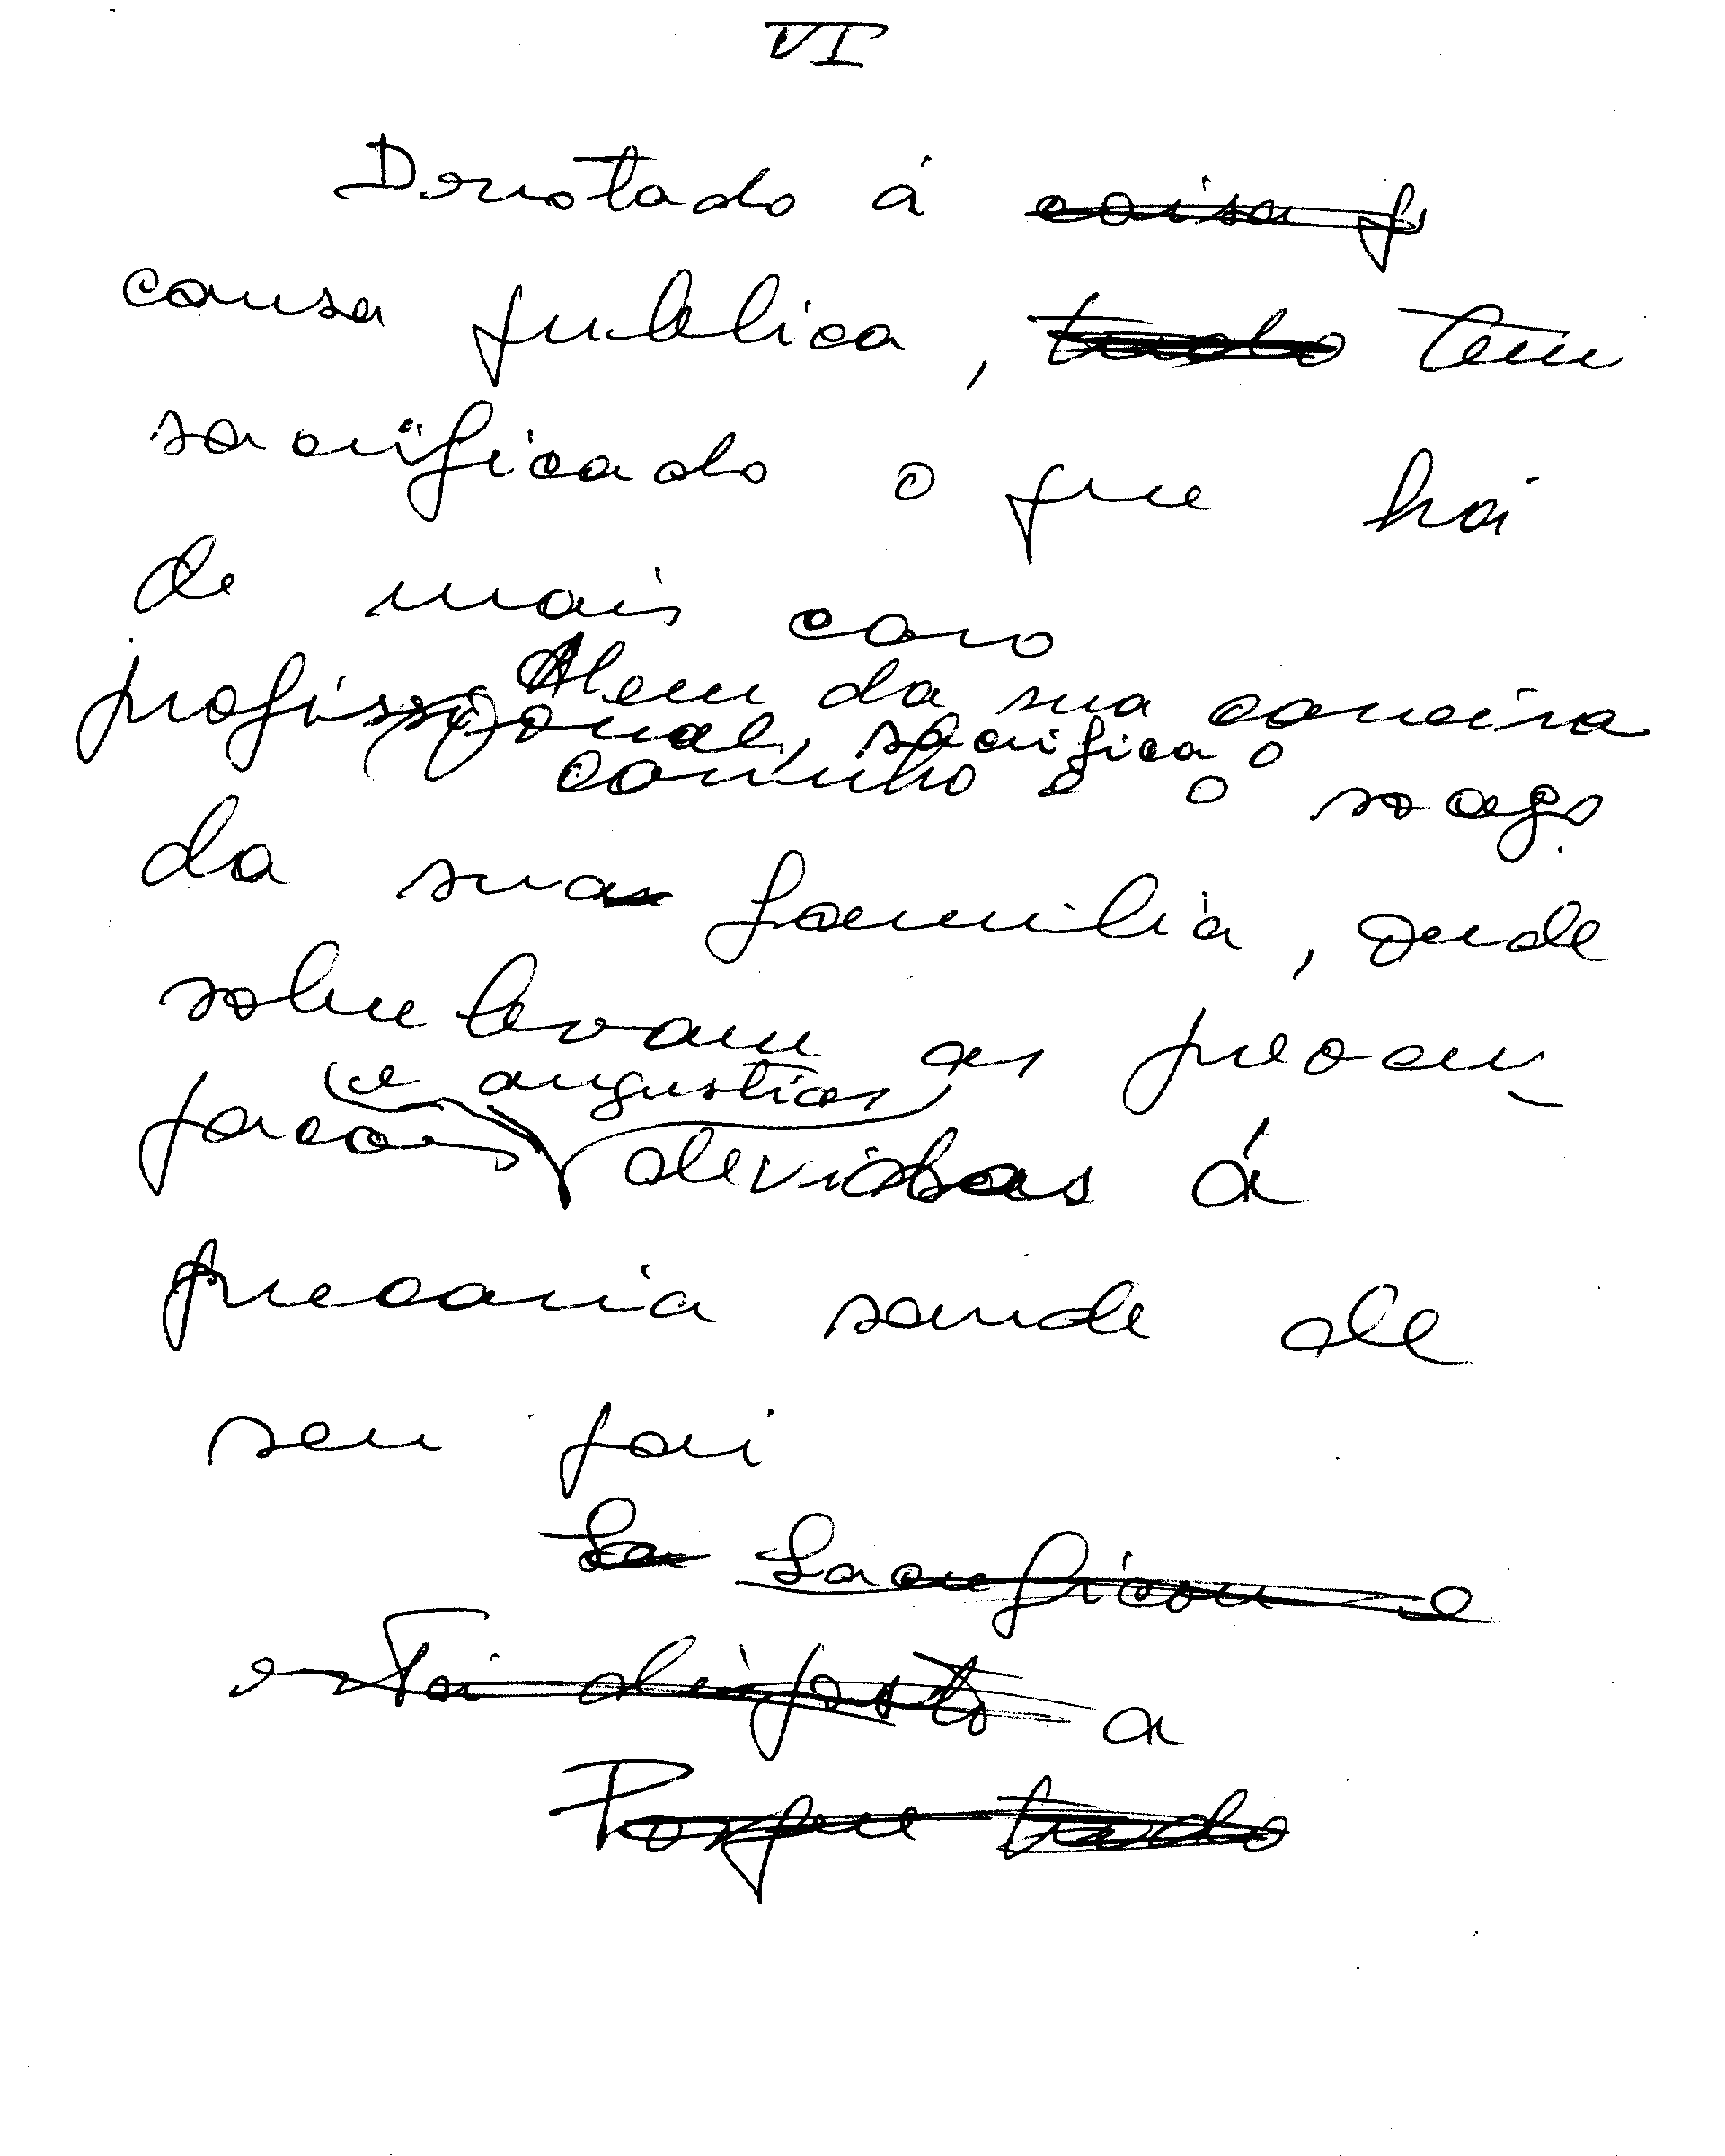 VI
Devotado á coisa p
causa publica, tudo tem
sacrificado o que há
de mais caro
Alem da sua carreira
profissional, sacrifica o
carinho e o
da sua familia, onde
sobrelevam as preocu-
e angustias
pacões devidas á
precaria saude de
seu pai
Sa Sacrificou e
está disposto a
Porque tudo